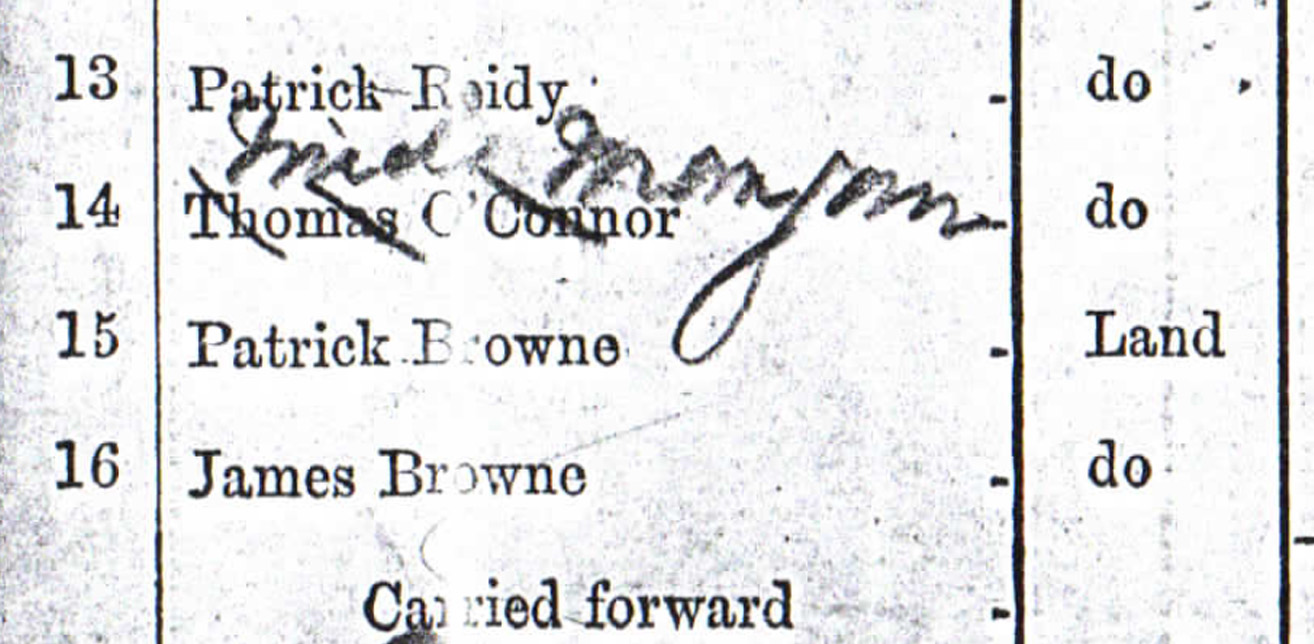 13 Patrick Reidy - do
Mich Mongan
14 Thomas O'Connor - do
15 Patrick Browne - Land
16 James Browne - do
Carried forward -